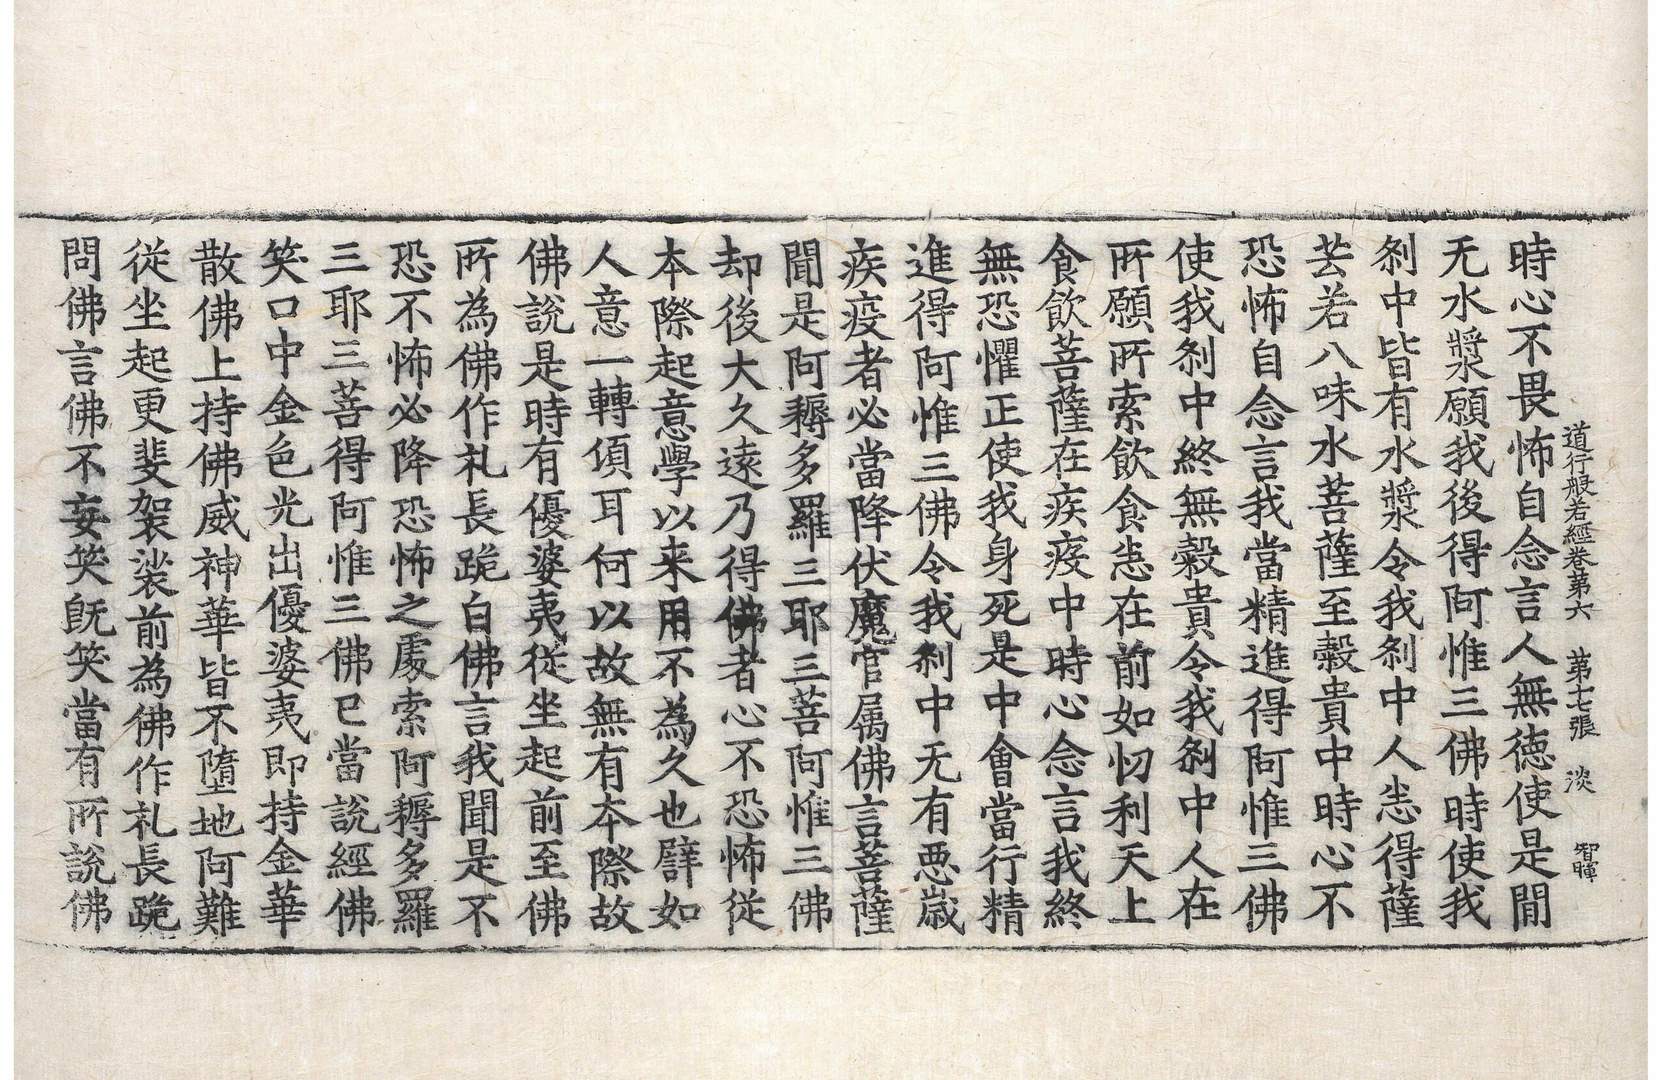 道行般若經卷第六　第十七張　淡　智暉
時心不畏怖自念言人無德使是間
无水漿願我後得阿惟三佛時使我
刹中皆有水漿令我刹中人悉得薩
芸若八味水菩薩至穀貴中時心不
恐怖自念言我當精進得阿惟三佛
使我刹中終無穀貴令我刹中人在
所願所索飲食悉在前如忉利天上
食飲菩薩在疾疫中時心念言我終
無恐懼正使我身死是中會當行精
進得阿惟三佛令我刹中无有悪歳
疾疫者必當降伏魔官属佛言菩薩
聞是阿耨多羅三耶三菩阿惟三佛
却後大久遠乃得佛者心不恐怖従
本際起意學以来用不為久也譬如
人意一轉項耳何以故無有本際故
佛說是時有優婆夷従坐起前至佛
所為佛作礼長跪白佛言我聞是不
恐不怖必降恐怖之處索阿耨多羅
三耶三菩得阿惟三佛已當說經佛
笑口中金色光出優婆夷即持金華
散佛上持佛威神華皆不墮地阿難
従坐起更斐袈裟前為佛作礼長跪
問佛言佛不妄笑既笑當有所說佛